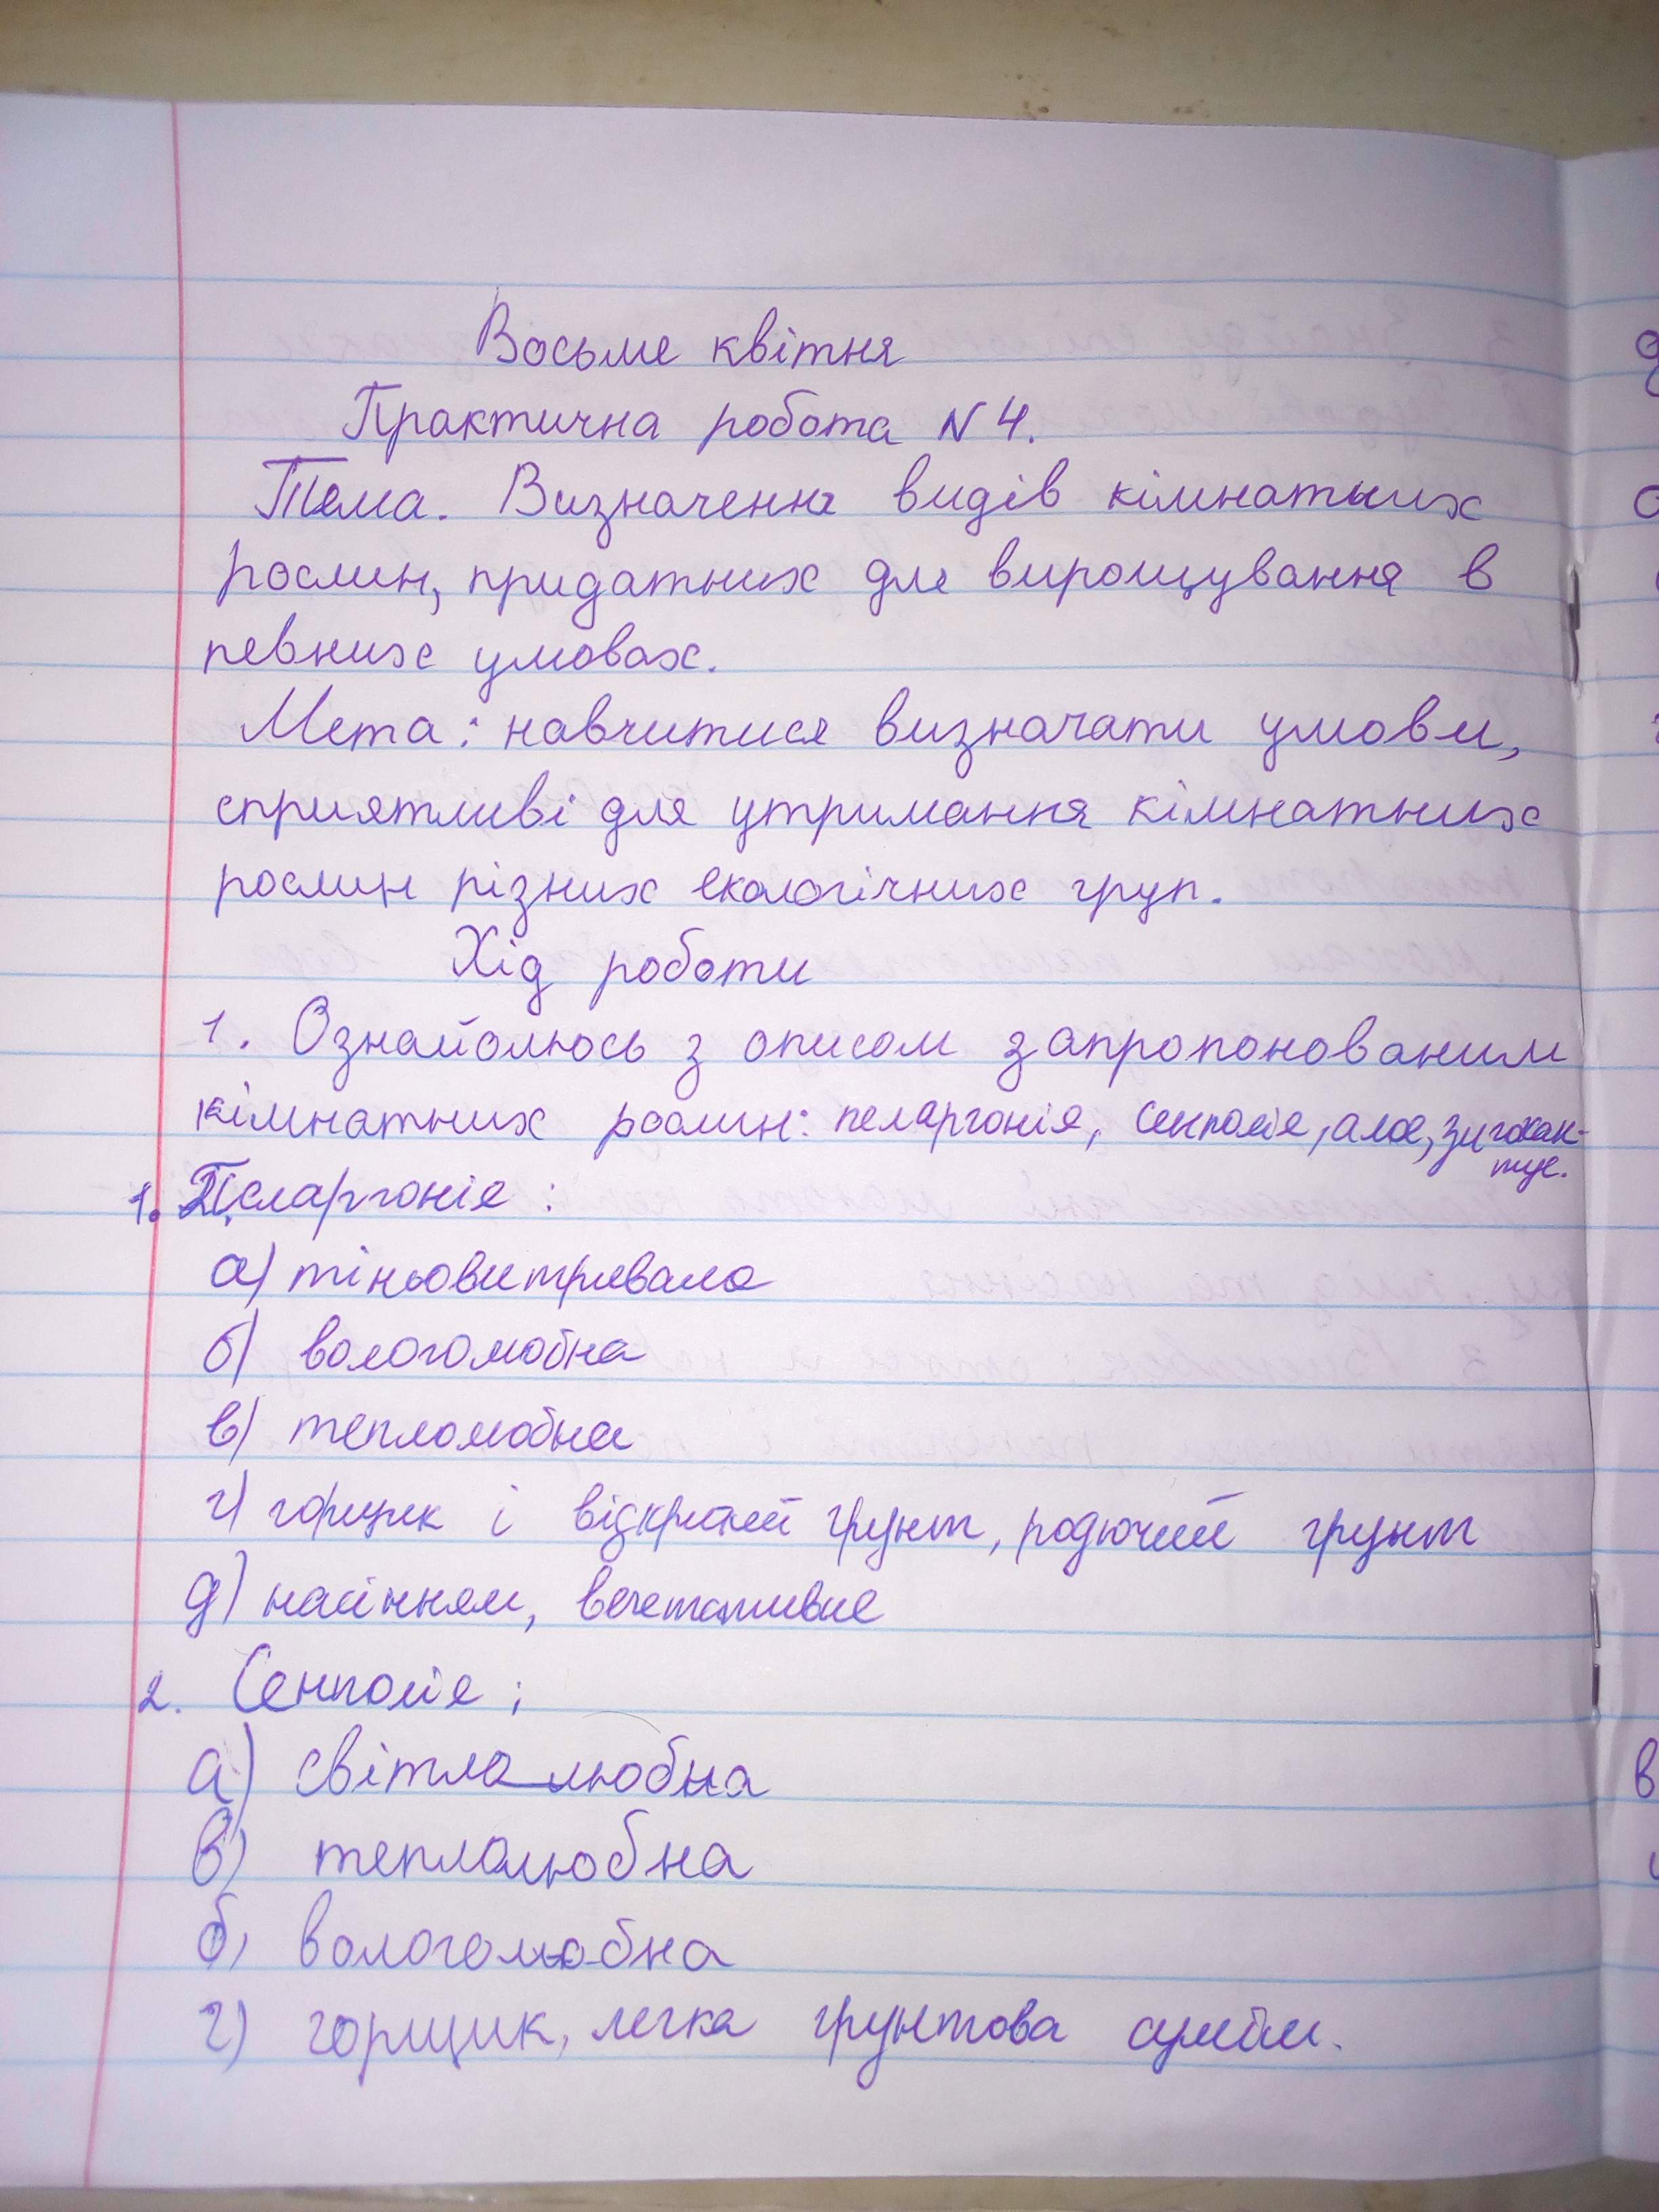 Восьме квітня
Практична робота N 4.
Тема. Визначення видів кімнатних
рослин, придатних для вирощування в
певних умовах.
Мета: навчитися визначати умови,
сприятливі для утримання кімнатних
рослин різних екологічних груп.
Хід роботи
1. Ознайомлюсь з описом запропонованим
кімнатних рослин: пеларгонія, сенполія, алое, зигокак-
тус.
1. Пеларгонія:
а) тіньовитривала
б) вологолюбна
в) теплолюбна
г) горщик і відкритий грунт, родючий грунт
д) насінням, вегетативне
2. Сенполія:
а) світлолюбна
в) теплолюбна
б) вологолюбна
г) горщик, легка грунтова суміш.